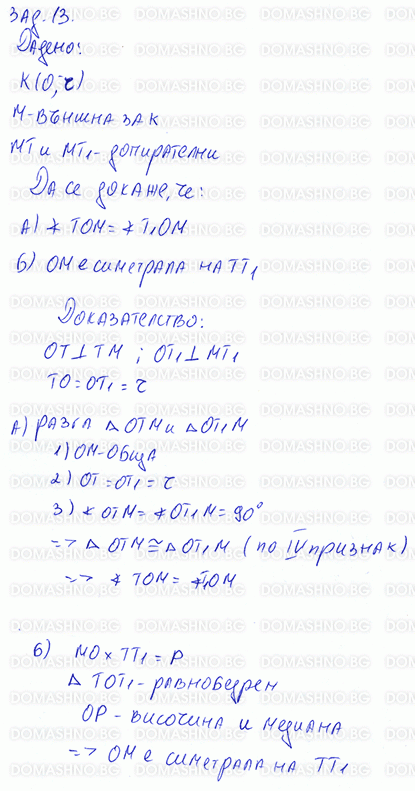 Зад. 13.
Дадено:
K(O; r)
M - външна за K
MT и MT₁ - допирателни
Да се докаже, че:
А) ∢ TOM = ∢ T₁OM
б) OM е симетрала на TT₁
Доказателство:
OT ⊥ TM ; OT₁ ⊥ MT₁
TO = OT₁ = r
А) разгл △ OTM и △ OT₁M
1) OM - обща
2) OT = OT₁ = r
3) ∢ OTM = ∢ OT₁M = 90°
=> △ OTM ≅ △ OT₁M (по IV признак)
=> ∢ TOM = ∢ T₁OM
б) MO × TT₁ = P
△ TOT₁ - равнобедрен
OP - височина и медиана
=> OM е симетрала на TT₁